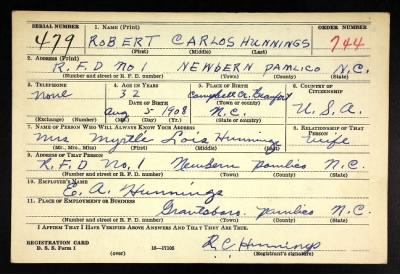 SERIAL NUMBER 1. NAME (Print) ORDER NUMBER
479 ROBERT CARLOS HUNNINGS 744
(First) (Middle) (Last)
2. ADDRESS (Print)
R.F.D NO 1 NEWBERN PAMLICO N.C.
(Number and street or R. F. D. number) (Town) (County) (State)
3. TELEPHONE 4. AGE IN YEARS 5. PLACE OF BIRTH 6. COUNTRY OF CITIZENSHIP
None 32 Campbell Cr. Beaufort
DATE OF BIRTH (Town or county)
Aug 5 1908 N.C. U.S.A.
(Exchange) (Number) (Mo.) (Day) (Yr.) (State or country)
7. NAME OF PERSON WHO WILL ALWAYS KNOW YOUR ADDRESS 8. RELATIONSHIP OF THAT PERSON
Mrs Myrtle Lois Hunnings Wife
(Mr., Mrs., Miss) (First) (Middle) (Last)
9. ADDRESS OF THAT PERSON
R.F.D NO, 1 Newbern pamlico N.C.
(Number and street or R. F. D. number) (Town) (County) (State)
10. EMPLOYER'S NAME
E. A. Hunnings
11. PLACE OF EMPLOYMENT OR BUSINESS
Grantsboro pamlico N.C.
(Number and street or R. F. D. number) (Town) (County) (State)
I AFFIRM THAT I HAVE VERIFIED ABOVE ANSWERS AND THAT THEY ARE TRUE.
REGISTRATION CARD
D. S. S. Form 1 (over) 16—17105 R C Hunnings
(Registrant's signature)